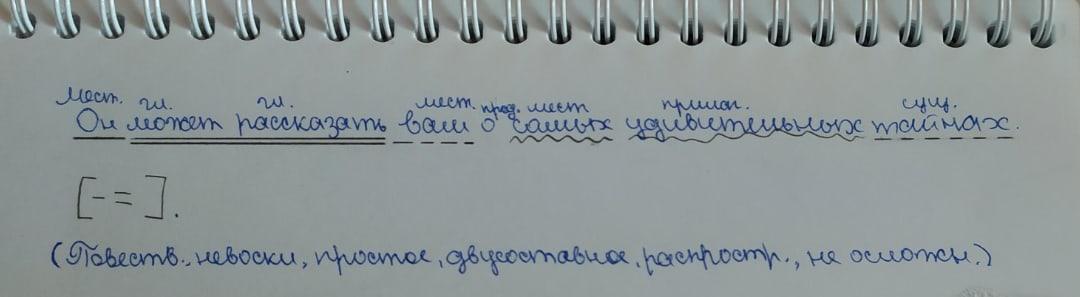 мест. гл. гл. мест. пред. мест прилаг. сущ.
Он может рассказать вам о самых удивительных тайнах.
[- = ].
(Повеств., невоскл, простое, двусоставное, распростр., не осложн.)